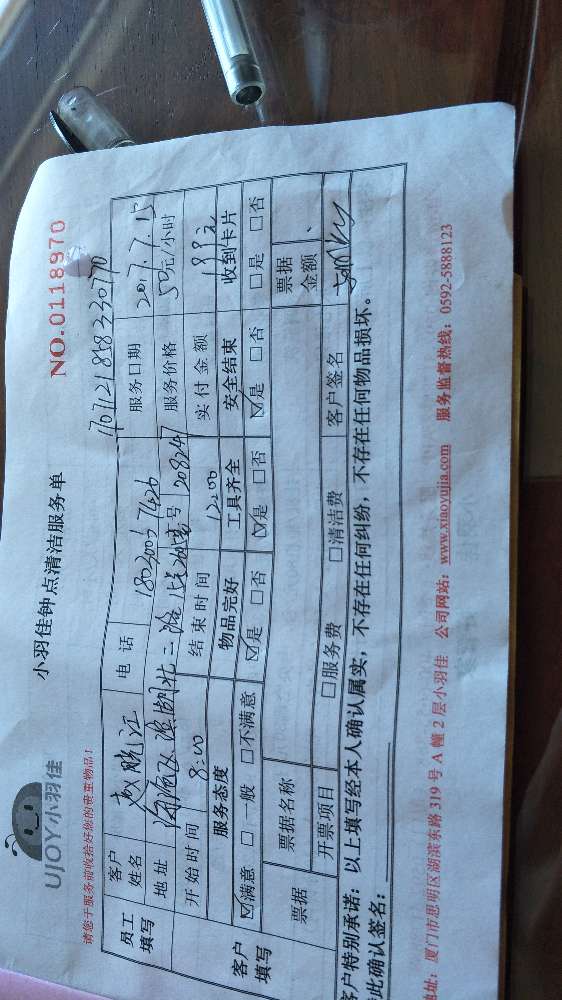 UJOY小羽佳
小羽佳钟点清洁服务单
NO.0118970
请您于服务前收拾好您的贵重物品!
员工填写
客户姓名 赵晓江 电话 服务日期 2017.7.15
地址 服务价格 50元/小时
开始时间 8:00 结束时间 12:00 实付金额 199元
客户填写
服务态度 物品完好 工具齐全 安全结束 收到卡片
☑满意 □一般 □不满意 ☑是 □否 ☑是 □否 ☑是 □否 □是 □否
票据 票据名称 票据金额
开票项目 □服务费 □清洁费 客户签名
客户特别承诺:以上填写经本人确认属实,不存在任何纠纷,不存在任何物品损坏。
此确认签名:
地址:厦门市思明区湖滨东路319号A幢2层小羽佳 公司网站:www.xiaoyujia.com 服务监督热线:0592-5888123